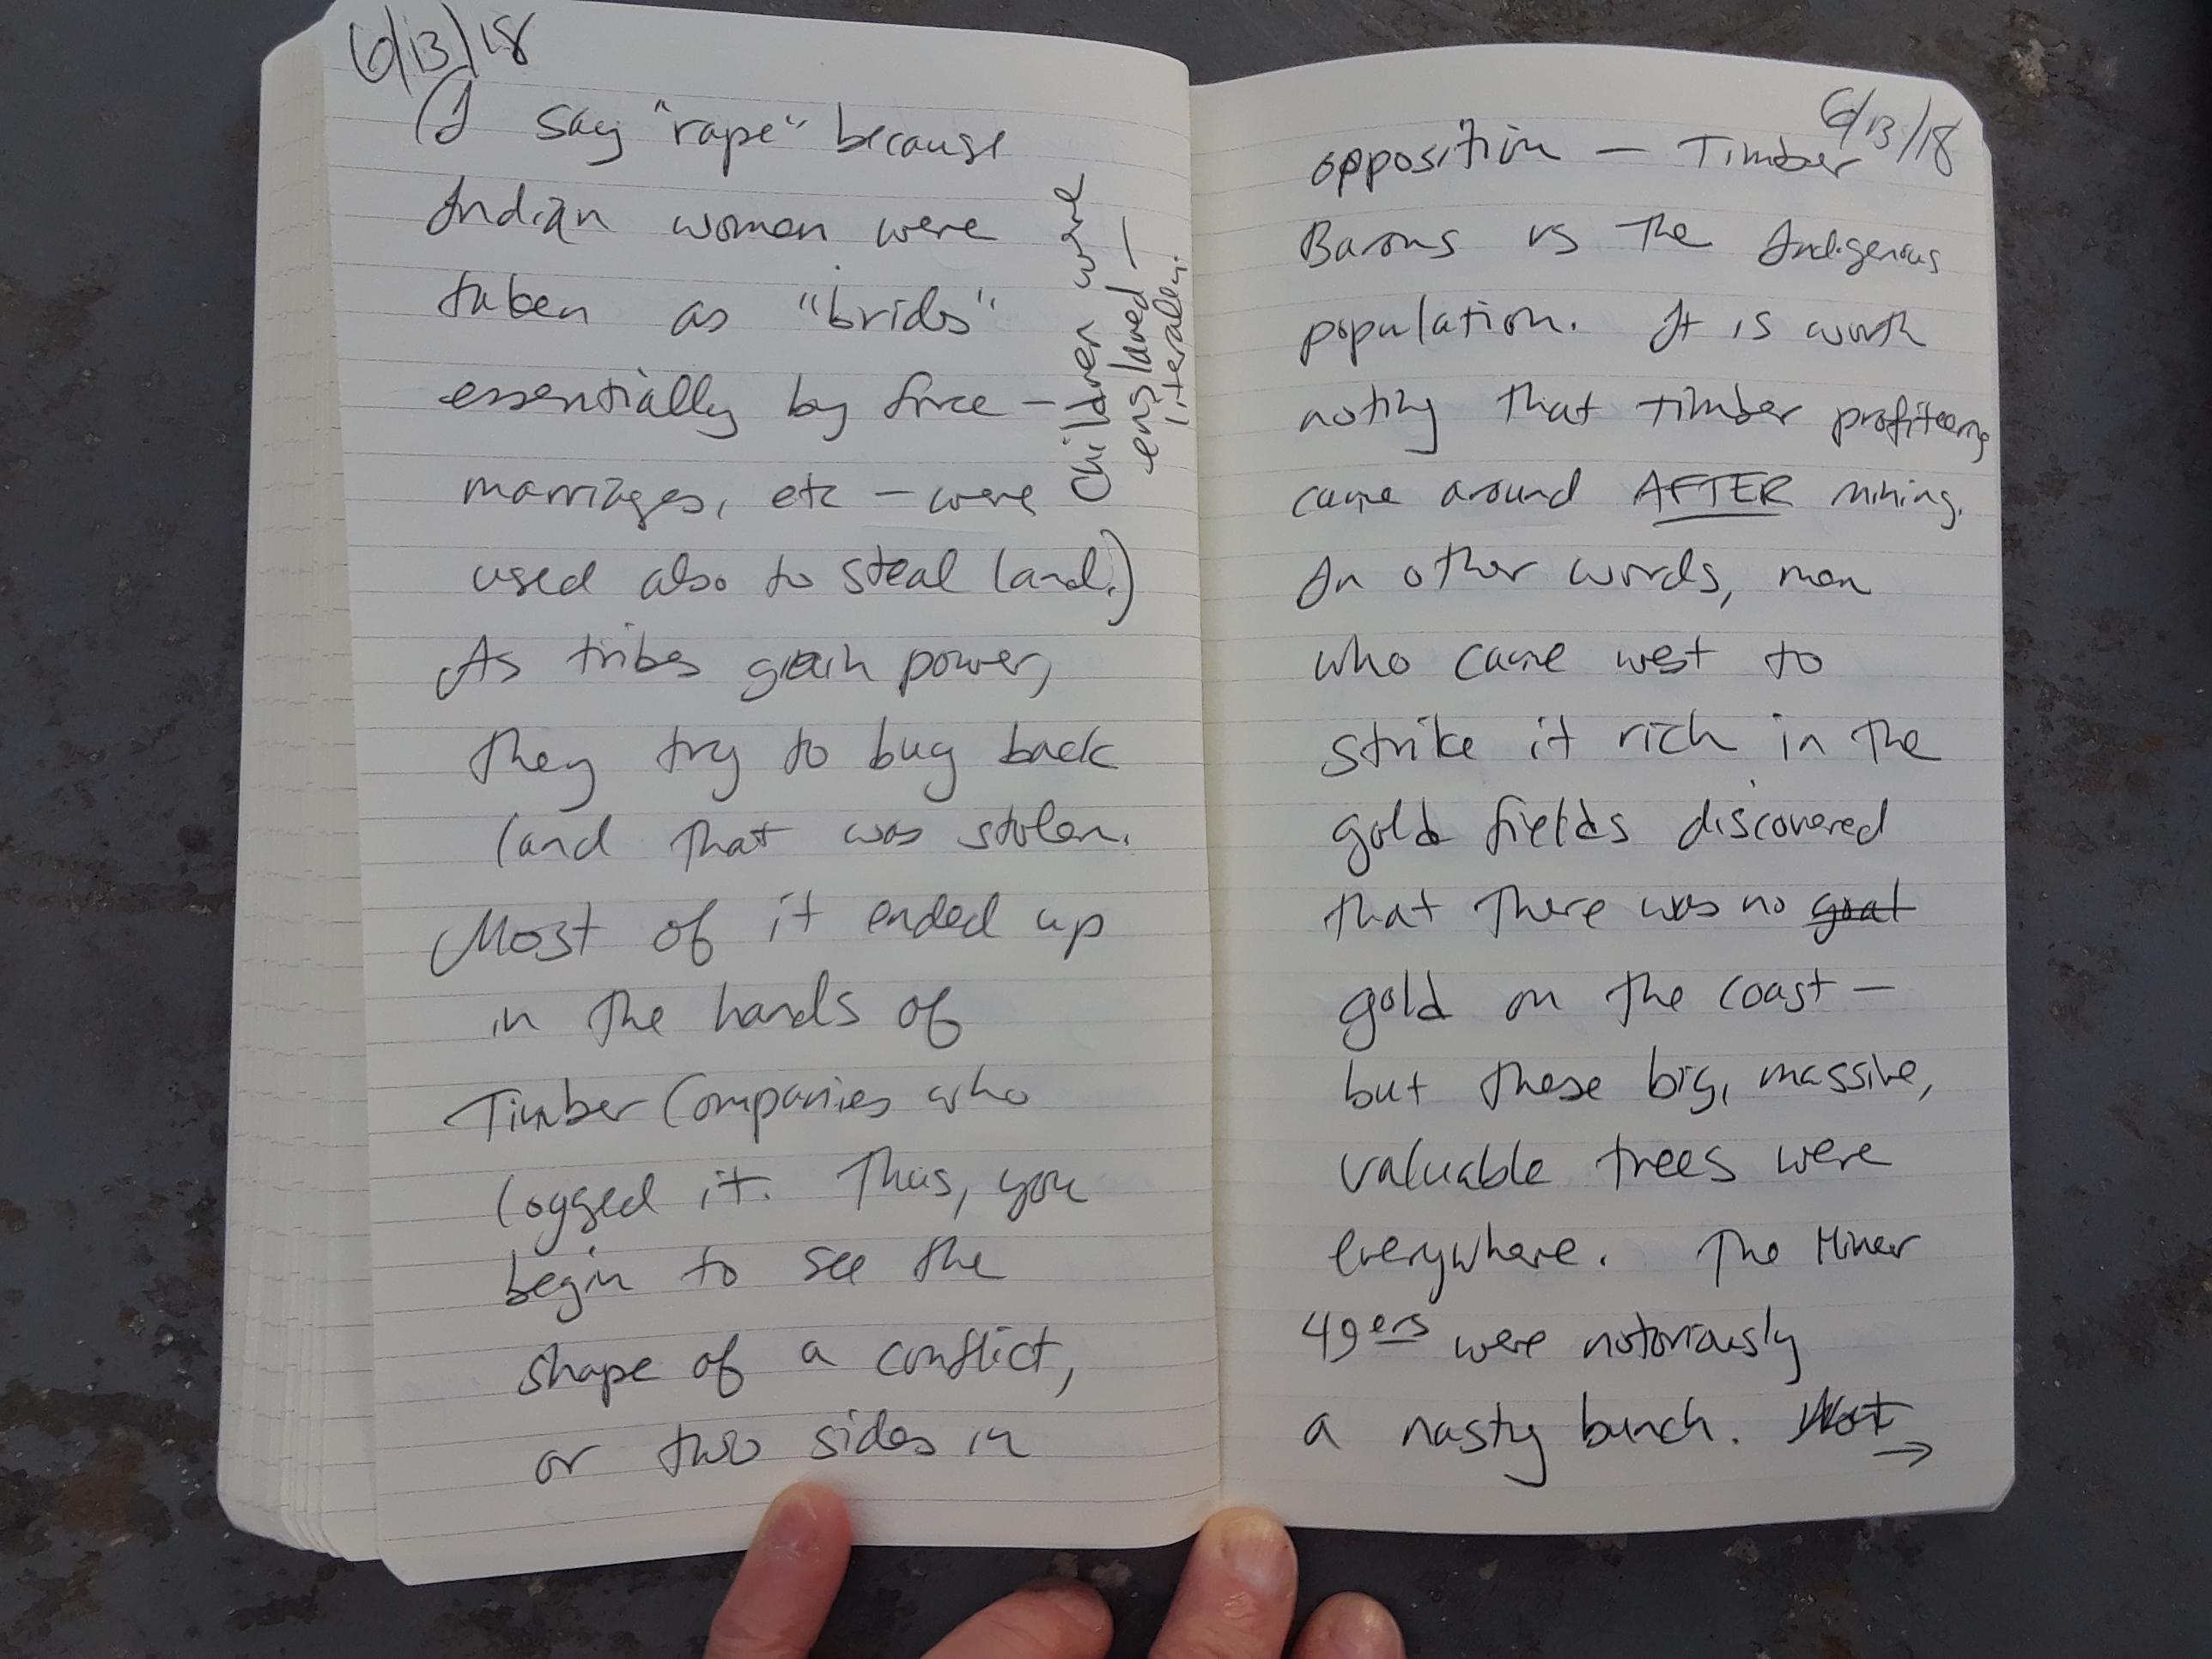 6/13/18
(I say "rape" because
Indian women were
taken as "brides"
essentially by force —
marriages, etc — were
used also to steal land.)
Children were
enslaved —
literally.
As tribes gain power,
they try to buy back
land that was stolen.
Most of it ended up
in the hands of
Timber Companies who
logged it. Thus, you
begin to see the
shape of a conflict,
or two sides in
6/13/18
opposition — Timber
Barons vs the Indigenous
population. It is worth
noting that timber profiteering
came around AFTER mining.
In other words, men
who came west to
strike it rich in the
gold fields discovered
that there was no goat
gold on the coast —
but these big, massive,
valuable trees were
everywhere. The Miner
49ers were notoriously
a nasty bunch. Not
→